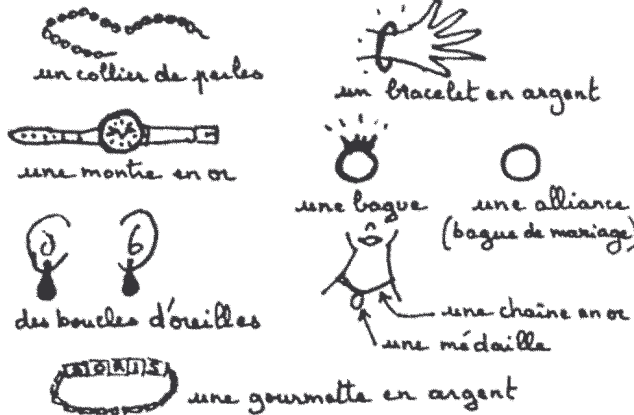 un collier de perles
un bracelet en argent
une montre en or
une bague
une alliance
(bague de mariage)
des boucles d'oreilles
une chaîne en or
une médaille
BORIS
une gourmette en argent